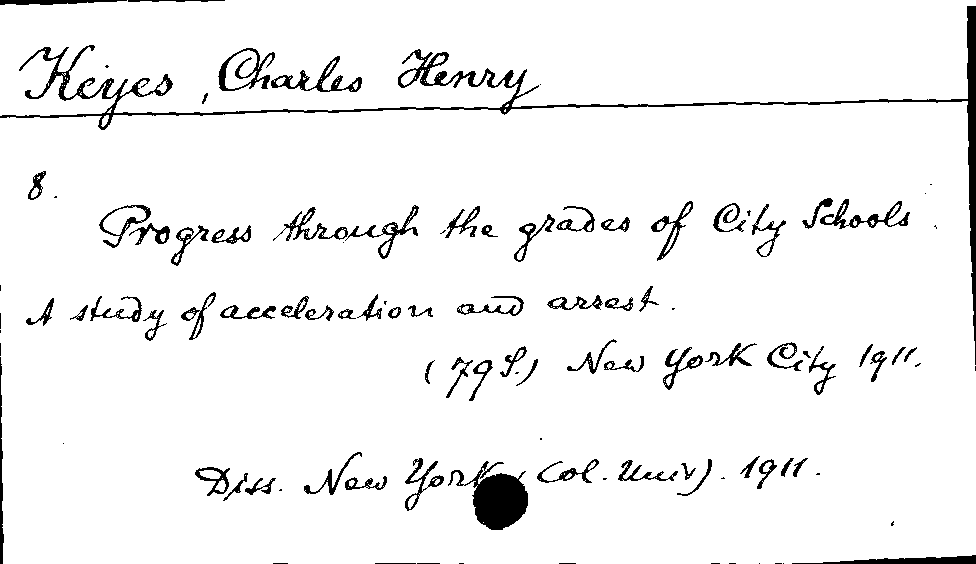 Keyes, Charles Henry
8.
Progress through the grades of City Schools.
A study of acceleration and arrest.
(79 S.) New York City 1911.
Diss. New York (Col. Univ). 1911.